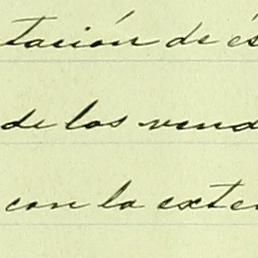 tación de és
de los vend
con la exten